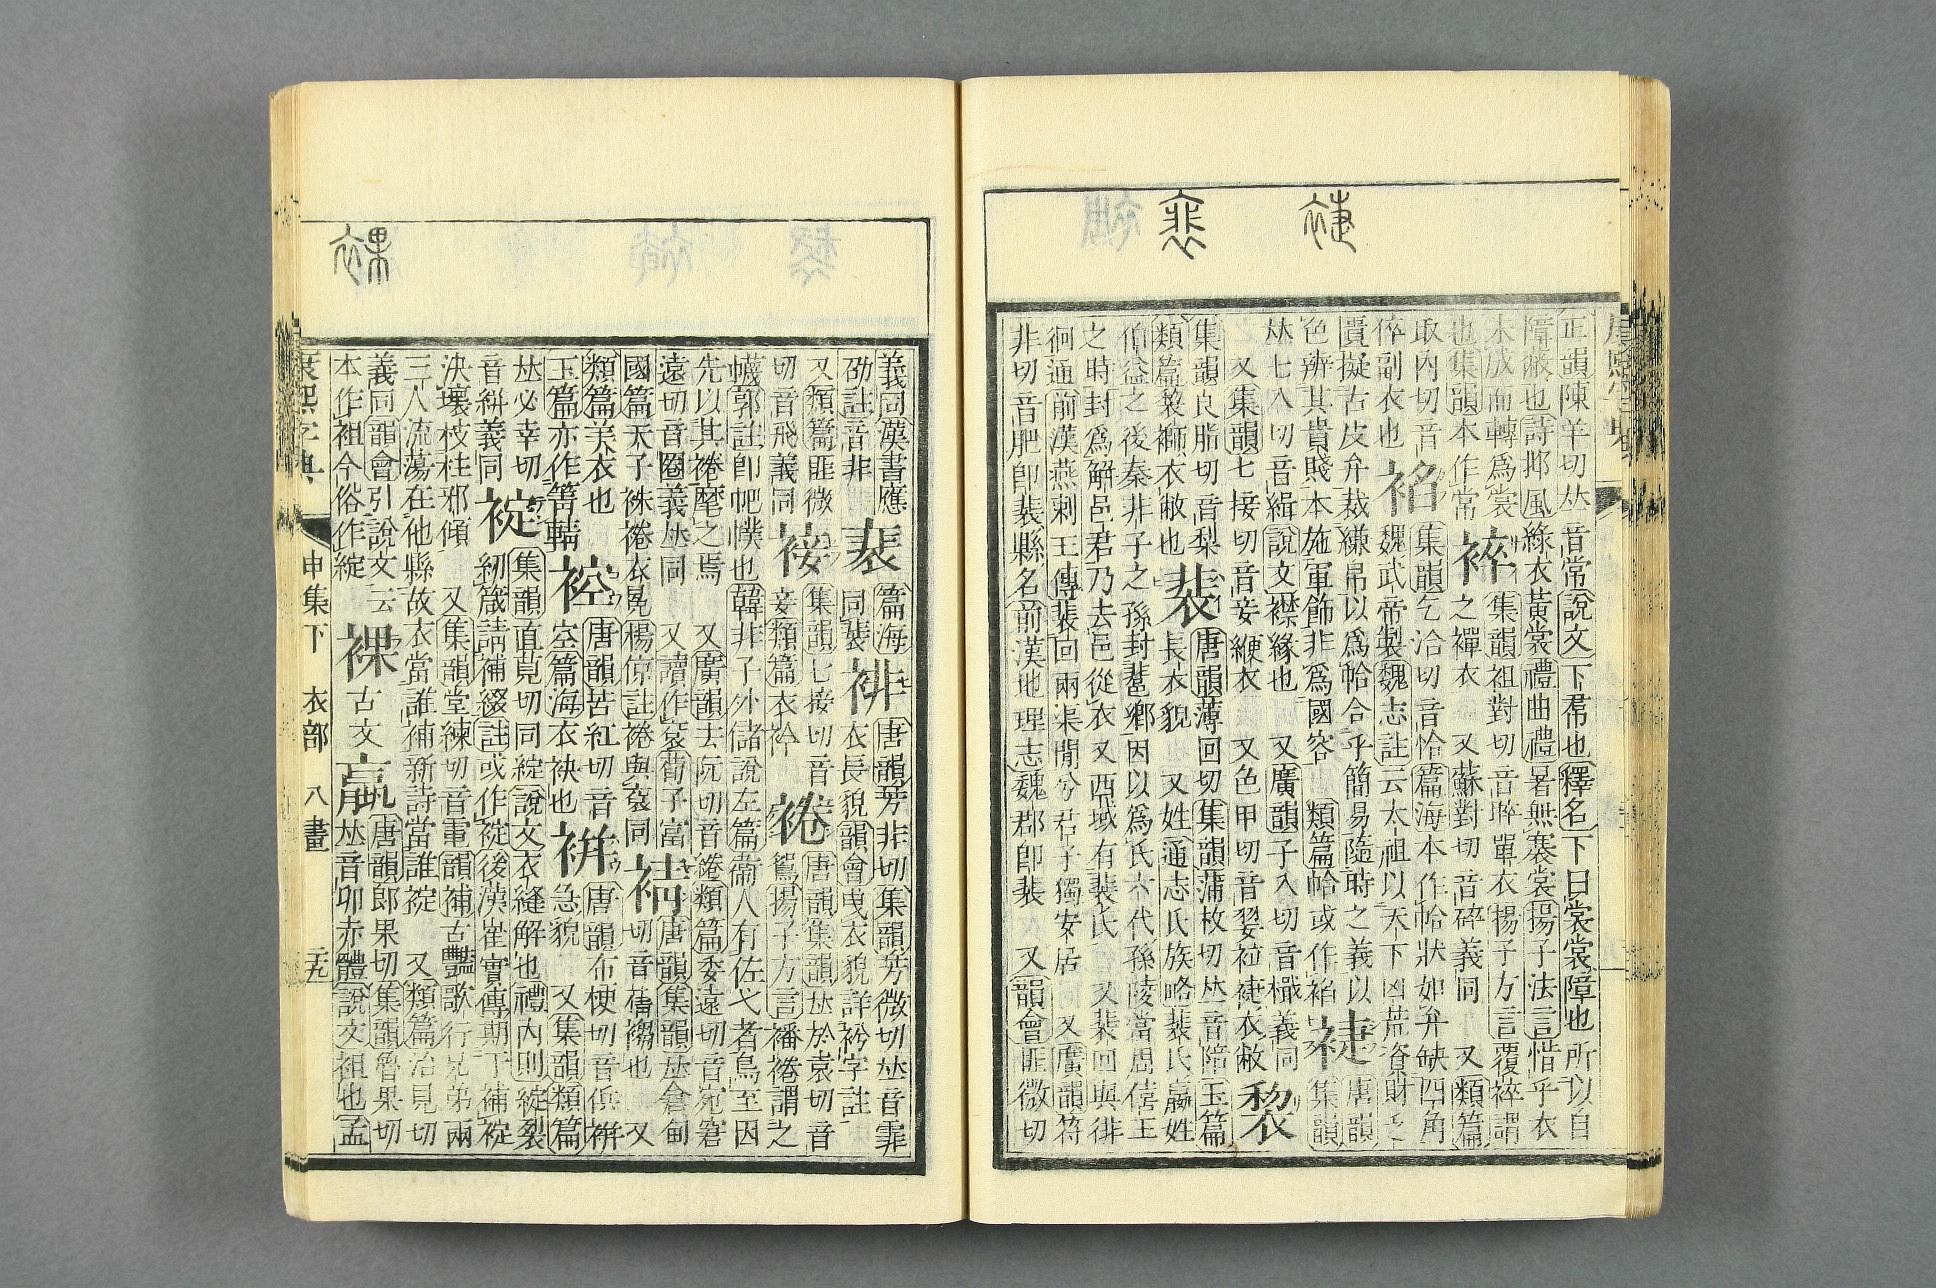 正韻陳羊切𠀤音常說文下帬也釋名下曰裳裳障也所以自
障蔽也詩邶風綠衣黃裳禮曲禮暑無褰裳揚子法言惜乎衣
未成而轉爲裳 䘸 集韻祖對切音晬單衣揚子方言覆䘸謂
也集韻本作常 之襌衣 又蘇對切音碎義同 又類篇
取內切音 集韻乞洽切音恰篇海本作帢狀如弁缺四角
倅副衣也 魏武帝製魏志註云太祖以天下凶荒資財乏
貴擬古皮弁裁縑帛以爲帢合乎簡易隨時之義以 䘹 唐韻
色辨其貴賤本施軍飾非爲國容 類篇帢或作 集韻
𠀤七入切音緝說文襟緣也 又廣韻子入切音檝義同
又集韻七接切音妾緶衣 又色甲切音翣䘹衣敝 裂
集韻良脂切音梨 裴 唐韻薄回切集韻蒲枚切𠀤音陪玉篇
類篇衣敝也 長衣貌 又姓通志氏族略裴氏嬴姓
伯益之後秦非子之孫封𨛬鄕因以爲氏六代孫陵當周僖王
之時封爲解邑君乃去邑從衣 又西域有裴氏 又裴回與徘
徊通前漢燕剌王傳裴回兩渠閒兮君子獨安居 又廣韻符
非切音肥卽裴縣名前漢地理志魏郡卽裴 又韻會匪微切
義同漢書應 裵 篇海 裶 唐韻芳非切集韻芳微切𠀤音霏
劭註音非 同裴 衣長貌韻會曵衣貌詳衯字註
又類篇匪微 䘽 集韻七接切音 裷 唐韻集韻𠀤於袁切音
切音飛義同 妾類篇衣衿 鴛揚子方言襎裷謂之
幭郭註卽帊幞也韓非子外儲說左篇衞人有佐弋者鳥至因
先以其裷麾之焉 又廣韻去阮切音綣類篇委遠切音宛窘
遠切音圈義𠀤同 又讀作袞荀子富 䙘 唐韻集韻𠀤倉甸
國篇天子袾裷衣冕楊倞註裷與袞同 切音蒨襐也 又
類篇美衣也 䘯 唐韻苦紅切音 䘰 唐韻布梗切音浜
玉篇亦作䌠䡖 空篇海衣袂也 急貌 又集韻類篇
𠀤必幸切 裧 集韻直莧切同綻說文衣縫解也禮內則綻裂
音絣義同 紉箴請補綴註或作䘺後漢崔實傳期于補䘺
決壞枝柱邪傾 又集韻堂練切音電韻補古豔歌行兄弟兩
三人流蕩在他縣故衣當誰補新詩當誰䘺 又類篇治見切
義同韻會引說文云 裸 唐韻郎果切集韻魯果切
本作袒今俗作綻 古文臝𠀤音卵赤體說文袒也孟
康熙字典 申集下 衣部 八畫